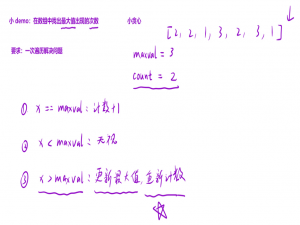 小 demo：在数组中找出最大值出现的次数
小贪心
[2, 2, 1, 3, 2, 3, 1]
要求：一次遍历解决问题
maxval = 3
count = 2
① x == maxval：计数+1
② x < maxval：无视
③ x > maxval：更新最大值，重新计数